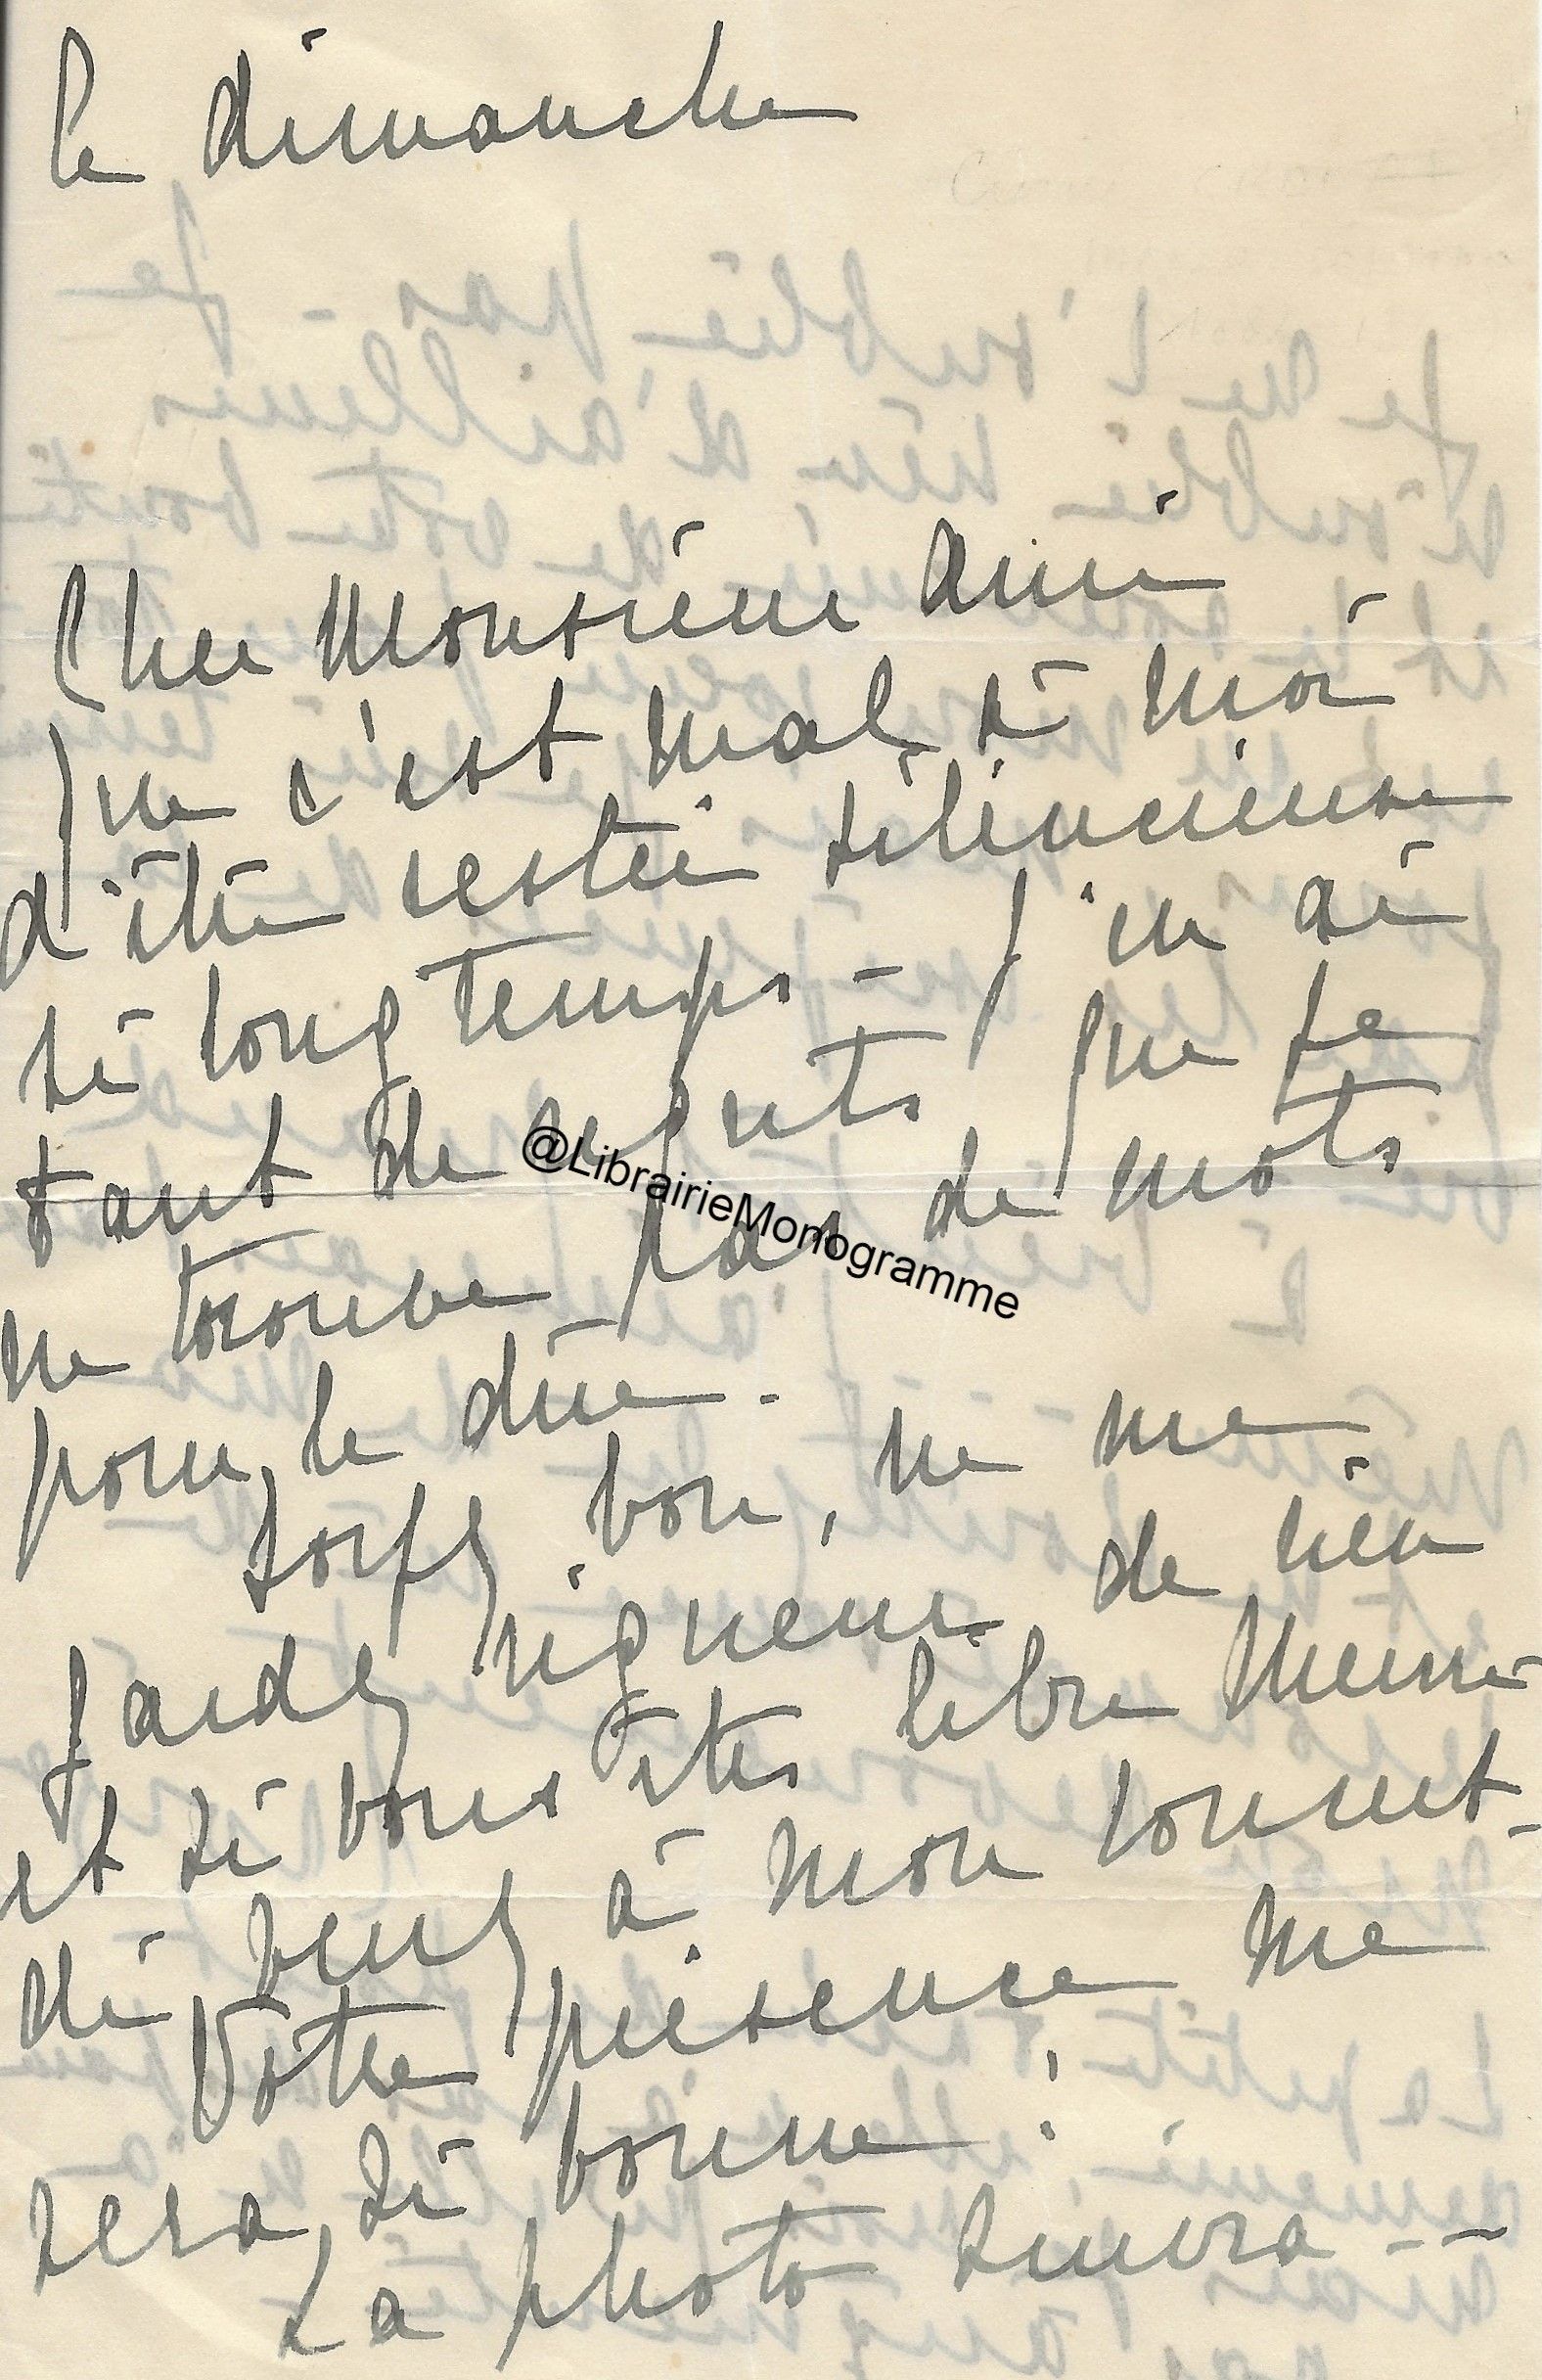 le dimanche
Cher Monsieur ami
que c'est mal à moi
d'être restée silencieuse
si longtemps - J'en ai
tant de regrets que je
ne trouve pas de mots
pour le dire -
Soyez bon, ne me
gardez rigueur de rien
et si vous êtes libre
di venez à mon
Votre présence me
sera si bonne !
La photo suivra --
@LibrairieMonogramme